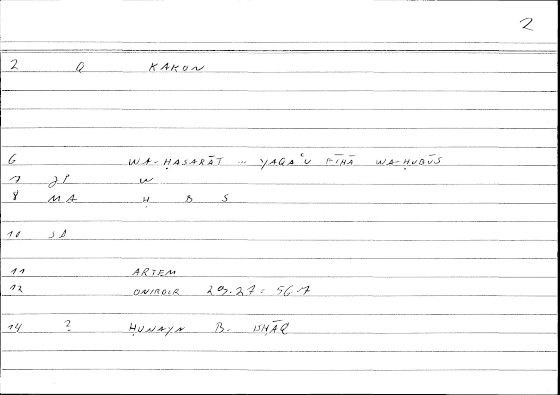 2
2 Q KAKON
6 WA-ḤASARĀT ... YAQAʿU FĪHĀ WA-ḤUBŪS
7 JP W
8 MA Ḥ B S
10 SD
11 ARTEM
12 ONIROCR 29.27 = 56.7
14 ? ḤUNAYN B. ISḤĀQ